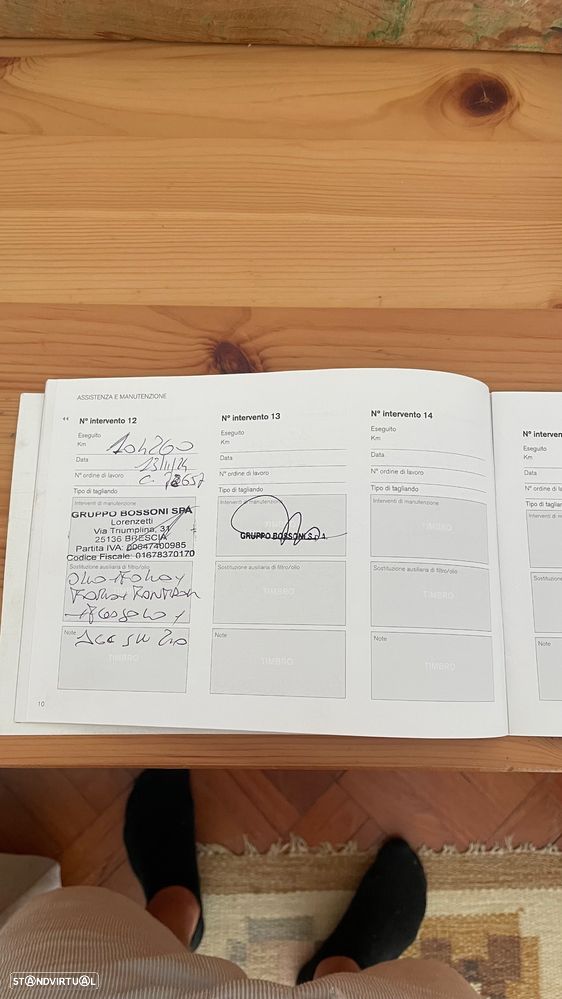 ASSISTENZA E MANUTENZIONE
N° intervento 12
Eseguito
Km 104260
Data 13/11/24
N° ordine di lavoro
Tipo di tagliando
Interventi di manutenzione
GRUPPO BOSSONI SPA
Lorenzetti
Via Triumplina, 31
25136 BRESCIA
Partita IVA: 00647400985
Codice Fiscale: 01678370170
Sostituzione ausiliaria di filtro/olio
Note
TIMBRO
10
N° intervento 13
Eseguito
Km
Data
N° ordine di lavoro
Tipo di tagliando
Interventi di manutenzione
GRUPPO BOSSONI S.p.A.
Sostituzione ausiliaria di filtro/olio
TIMBRO
Note
TIMBRO
N° intervento 14
Eseguito
Km
Data
N° ordine di lavoro
Tipo di tagliando
Interventi di manutenzione
TIMBRO
Sostituzione ausiliaria di filtro/olio
TIMBRO
Note
TIMBRO
N° interven
Eseguito
Km
Data
N° ordine di la
Tipo di tagliar
Interventi di m
Sostituzione
Note
STANDVIRTUAL